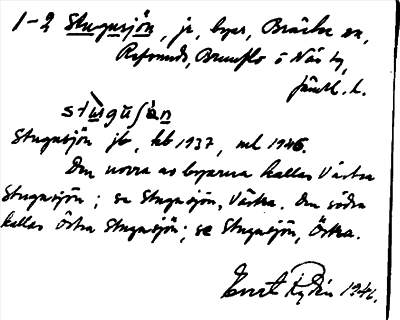 1-2 Stugusjön, jr, byar, Bräcke sn,
Refsunds, Brunflo o Näs tg,
Jämtl. l.
stùgusjön
Stugusjön jb, kb 1937, ml 1946.
Den norra av byarna kallas Västra
Stugusjön; se Stugusjön, Västra. Den södra
kallas Östra Stugusjön; se Stugusjön, Östra.
1946.